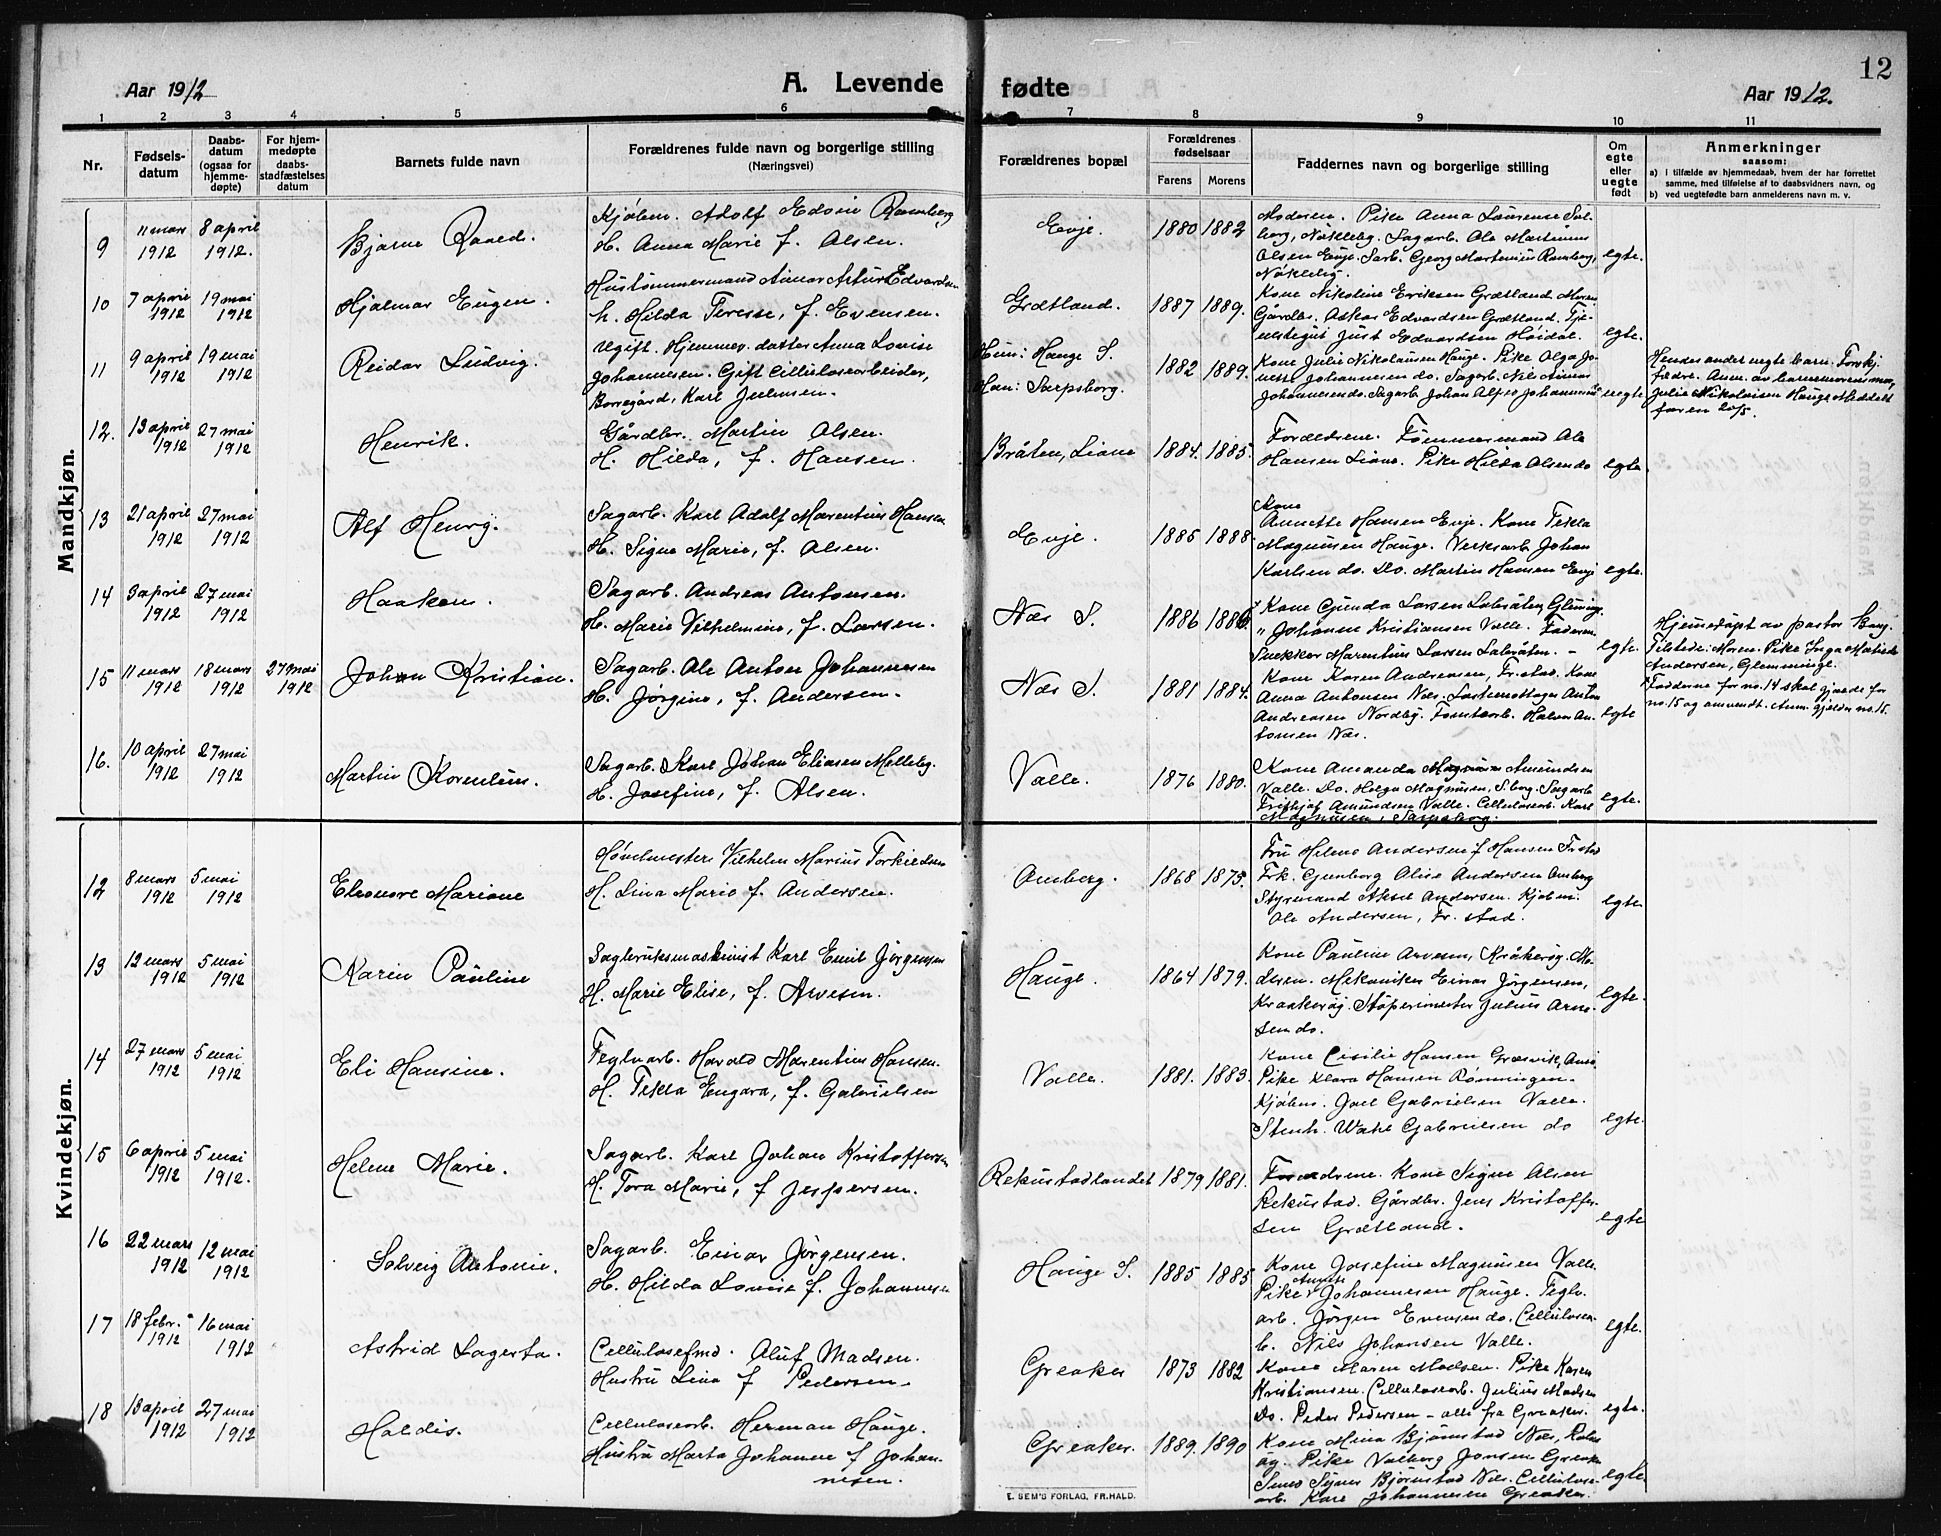 12
Aar 1912
A. Levende fødte
Aar 1912.
1 2 3 4 5 6 7 8 9 10 11
Nr.
Fødsels-
datum
Daabs-
datum
(ogsaa for
hjemme-
døpte)
For hjem-
medøpte
daabs-
stadfæstelses
datum
Barnets fulde navn
Forældrenes fulde navn og borgerlige stilling
(Næringsvei)
Forældrenes bopæl
Forældrenes
fødselsaar
Farens Morens
Faddernes navn og borgerlige stilling
Om
egte
eller
uegte
født
Anmerkninger
saasom:
a) i tilfælde av hjemmedaab, hvem der har forrettet
samme, med tilføielse af to daabsvidners navn, og
b) ved uegtefødte barn anmelderens navn m. v.
Mandkjøn.
9
11 mars
1912
8 april
1912.
Bjarne Roald.
Kjøbm. Adolf Edvin Ramberg
H. Anna Marie f. Olsen.
Evje.
1880 1882
Moderen. Pike Anna Laurense Sol-
berg, Nökleby. Sagarb. Ole Martinius
Olsen Evje. Sarb. Georg Martinius Ramberg,
Nökleby.
egte.
10
7 april
1912
19 mai
1912
Hjalmar Eugen.
Hustømmermand Einar Artur Edvardsen
h. Hilda Terese, f. Evensen.
Grætland.
1887 1889.
Kone Nikoline Eriksen Grætland. Moren
Gårdbr. Oskar Edvardsen Grætland. Tje-
nestegut Just Edvardsen Hoidal.
egte.
11
9 april
1912
19 mai
1912
Reidar Ludvig.
Ugift. Hjemmev. datter Anna Lovise
Johannesen. Gift Cellulosearbeider,
Borregård, Karl Julmsen.
Hun: Hauge S.
Han: Sarpsborg.
1882 1889.
Kone Julie Nikolaisen Hauge. Pike Olga Jo-
Johannesen do. Sagarb. Nils Einar
Johannesen do. Sagarb. Johan Alfred Johannesen
uegte
Hendes andet uegte barn. Forskj.
fædre. Anm. av barnemorens mor,
Julie Nikolaisen Hauge. Meddelt
faren 20/5.
12.
13 april
1912
27 mai
1912
Henrik.
Gårdbr. Martin Olsen.
H. Hilda, f. Hansen.
Bråten, Liane
1884. 1885.
Forældrene. Tømmermand Ole
Hansen Liane. Pike Hilda Olsen do
egte.
13
21 april
1912
27 mai
1912
Alf Henry.
Sagarb. Karl Adolf Marentius Hansen
H. Signe Marie, f. Olsen.
Evje.
1885 1888.
Kone
Annette Hansen Evje. Kone Tekla
Magnusen Hauge. Verksarb. Johan
Karlsen do. Do. Martin Hansen Evje
egte.
14
3 april
1912
27 mai
1912
Haakon.
Sagarb. Andreas Antonsen.
H. Marie Vilhelmine, f. Larsen.
Næs S.
1886 1886.
x Kone Gunda Larsen Labråten, Glemmige.
" Johanne Kristiansen Valle. Faderen.
Snekker Marentius Larsen Labråten. -
egte.
15
11 mars
1912
18 mars
1912
27 mai
1912
Johan Kristian.
Sagarb. Ole Anton Johannesen
H. Jørgine, f. Andersen.
Næs S.
1881 1884.
Kone Karen Andersen, Fr.stad. Kone
Anna Antonsen Næs. Lastemottager Anton
Andreasen Nordby. Tomtearb. Halvor An-
tonsen Næs.
egte
Hjemedøpt av pastor Berg.
Tilstede: Moren. Pike Inga Matilde
Andersen, Glemminge.
x Fadderne for no. 14 skal gjælde for
no. 15 og omvendt. Anm. gjælder no. 15.
16.
10 april
1912
27 mai
1912
Martin Kornelius.
Sagarb. Karl Johan Eliasen Melleby.
H. Josefine, f. Olsen.
Valle.
1876 1880.
Kone Amanda Amundsen
Valle. Do. Helga Magnusen, S.borg. Sagarb.
Fridthjof Amundsen Valle. Cellulosearb. Karl
Magnusen, Sarpsborg.
egte.
Kvindekjøn.
12
8 mars
1912
5 mai
1912
Eleonore Mariane
Hövelmester Vilhelm Marius Torkildsen
H. Lina Marie f. Andersen.
Omberg.
1868 1875.
Fru Helene Andersen f Hansen Fr.stad
Frk. Gunborg Olise Andersen Omberg
Styrmand Aksel Andersen. Kjøbm.
Ole Andersen, Fr. stad.
egte
13
12 mars
1912
5 mai
1912
Karin Pauline
Sagbruksmaskinist Karl Emil Jörgensen
H. Marie Elise, f. Arvesen.
Hauge.
1864 1879.
Kone Pauline Arvesen, Kråkerøy. Mo-
deren. Mekaniker Einar Jörgensen,
Kraakerøy. Støperimester Julius Arve-
sen do.
egte.
14
27 mars
1912
5 mai
1912
Eli Hansine.
Teglv.arb. Harald Marentius Hansen.
H. Tekla Engara, f. Gabrielsen
Valle.
1881. 1883.
Kone Cisilie Hansen Græsvik, Onsø
Pike Klara Hansen Rømningen.
Kjøbm. Joel Gabrielsen Valle.
Stenh. Gabrielsen do
egte.
15
6 april
1912
5 mai
1912.
Helene Marie.
Sagarb. Karl Johan Kristoffersen
H. Tora Marie, f Jespersen.
Rekustadlandet
1879 1881.
Forældrene. Kone Signe Olsen
Rekustad. Gårdbr. Jens Kristoffer-
sen Grætland.
egte
16
22 mars
1912
12 mai
1912
Solveig Antonie.
Sagarb. Einar Jörgensen.
H. Hilda Lovise f. Johannesen
Hauge S.
1885 1885
Kone Josefine Magnusen Valle.
Pike Johannesen Hauge. Teglv.
arb. Jörgen Evensen do. Cellulosear-
b. Nils Johansen Valle.
egte.
17
18 febr.
1912
16 mai
1912
Astrid Lagerta.
Cellulosefmd. Oluf Madsen.
Hustru Lina f Pedersen.
Greaker
1873 1882
Kone Maren Madsen. Pike Karen
Kristiansen. Cellulosearb. Julius Madsen
Do. Peder Pedersen - alle fra Greaker.
egte.
18
13 april
1912
27 mai
1912
Haldis.
Cellulosearb. Herman Hauge.
Hustru Marta Johanne f Johan-
nesen.
Greaker.
1889. 1890
Kone Mina Björnstad Næs, Rolvs-
öy. Pike Valborg Jonsen Greaker
Björnstad Næs. Cellulose-
arb. Karl Johannesen Greaker.
egte.
E. SEM'S FORLAG, FR.HALD.